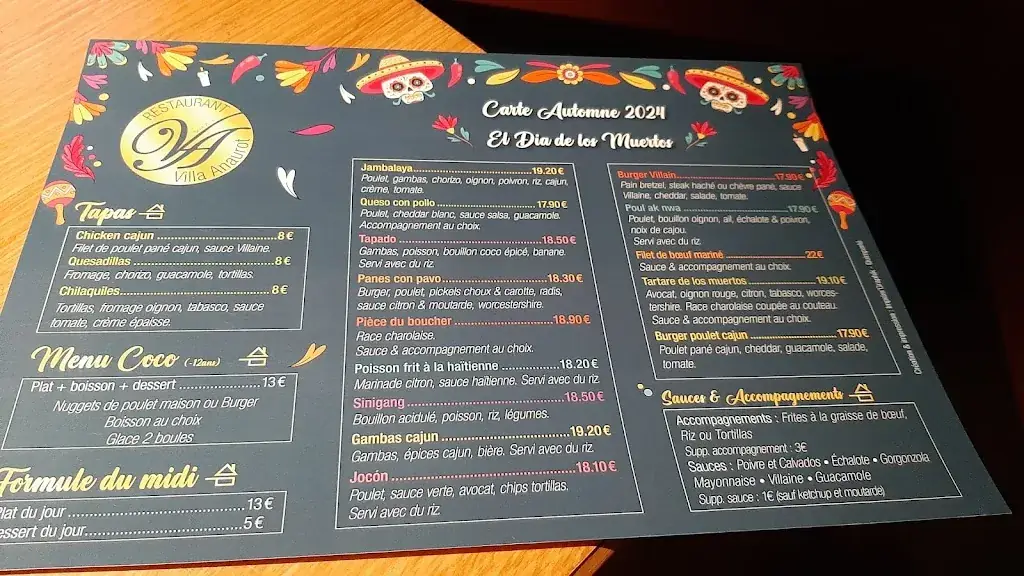 RESTAURANT
VA
Villa Anaurot
Carte Automne 2024
El Dia de los Muertos
Tapas
Chicken cajun 8 €
Filet de poulet pané cajun, sauce Villaine.
Quesadillas 8 €
Fromage, chorizo, guacamole, tortillas.
Chilaquiles 8 €
Tortillas, fromage oignon, tabasco, sauce
tomate, crème épaisse.
Menu Coco (-12ans)
Plat + boisson + dessert 13 €
Nuggets de poulet maison ou Burger
Boisson au choix
Glace 2 boules
Formule du midi
Plat du jour 13 €
dessert du jour 5 €
Jambalaya 19.20 €
Poulet, gambas, chorizo, oignon, poivron, riz, cajun,
crème, tomate.
Queso con pollo 17.90 €
Poulet, cheddar blanc, sauce salsa, guacamole.
Accompagnement au choix.
Tapado 18.50 €
Gambas, poisson, bouillon coco épicé, banane.
Servi avec du riz.
Panes con pavo 18.30 €
Burger, poulet, pickels choux & carotte, radis,
sauce citron & moutarde, worcestershire.
Pièce du boucher 18.90 €
Race charolaise.
Sauce & accompagnement au choix.
Poisson frit à la haïtienne 18.20 €
Marinade citron, sauce haïtienne. Servi avec du riz.
Sinigang 18.50 €
Bouillon acidulé, poisson, riz, légumes.
Gambas cajun 19.20 €
Gambas, épices cajun, bière. Servi avec du riz.
Jocón 18.10 €
Poulet, sauce verte, avocat, chips tortillas.
Servi avec du riz.
Burger Villain 17.90 €
Pain bretzel, steak haché ou chèvre pané, sauce
Villaine, cheddar, salade, tomate.
Poul ak nwa 17.90 €
Poulet, bouillon oignon, ail, échalote & poivron,
noix de cajou.
Servi avec du riz.
Filet de bœuf mariné 22 €
Sauce & accompagnement au choix.
Tartare de los muertos 19.10 €
Avocat, oignon rouge, citron, tabasco, worces-
tershire. Race charolaise coupée au couteau.
Sauce & accompagnement au choix.
Burger poulet cajun 17.90 €
Poulet pané cajun, cheddar, guacamole, salade,
tomate.
Sauces & Accompagnements
Accompagnements : Frites à la graisse de bœuf,
Riz ou Tortillas
Supp. accompagnement : 3€
Sauces : Poivre et Calvados • Échalote • Gorgonzola
Mayonnaise • Villaine • Guacamole
Supp. sauce : 1€ (sauf ketchup et moutarde)
Création & impression :